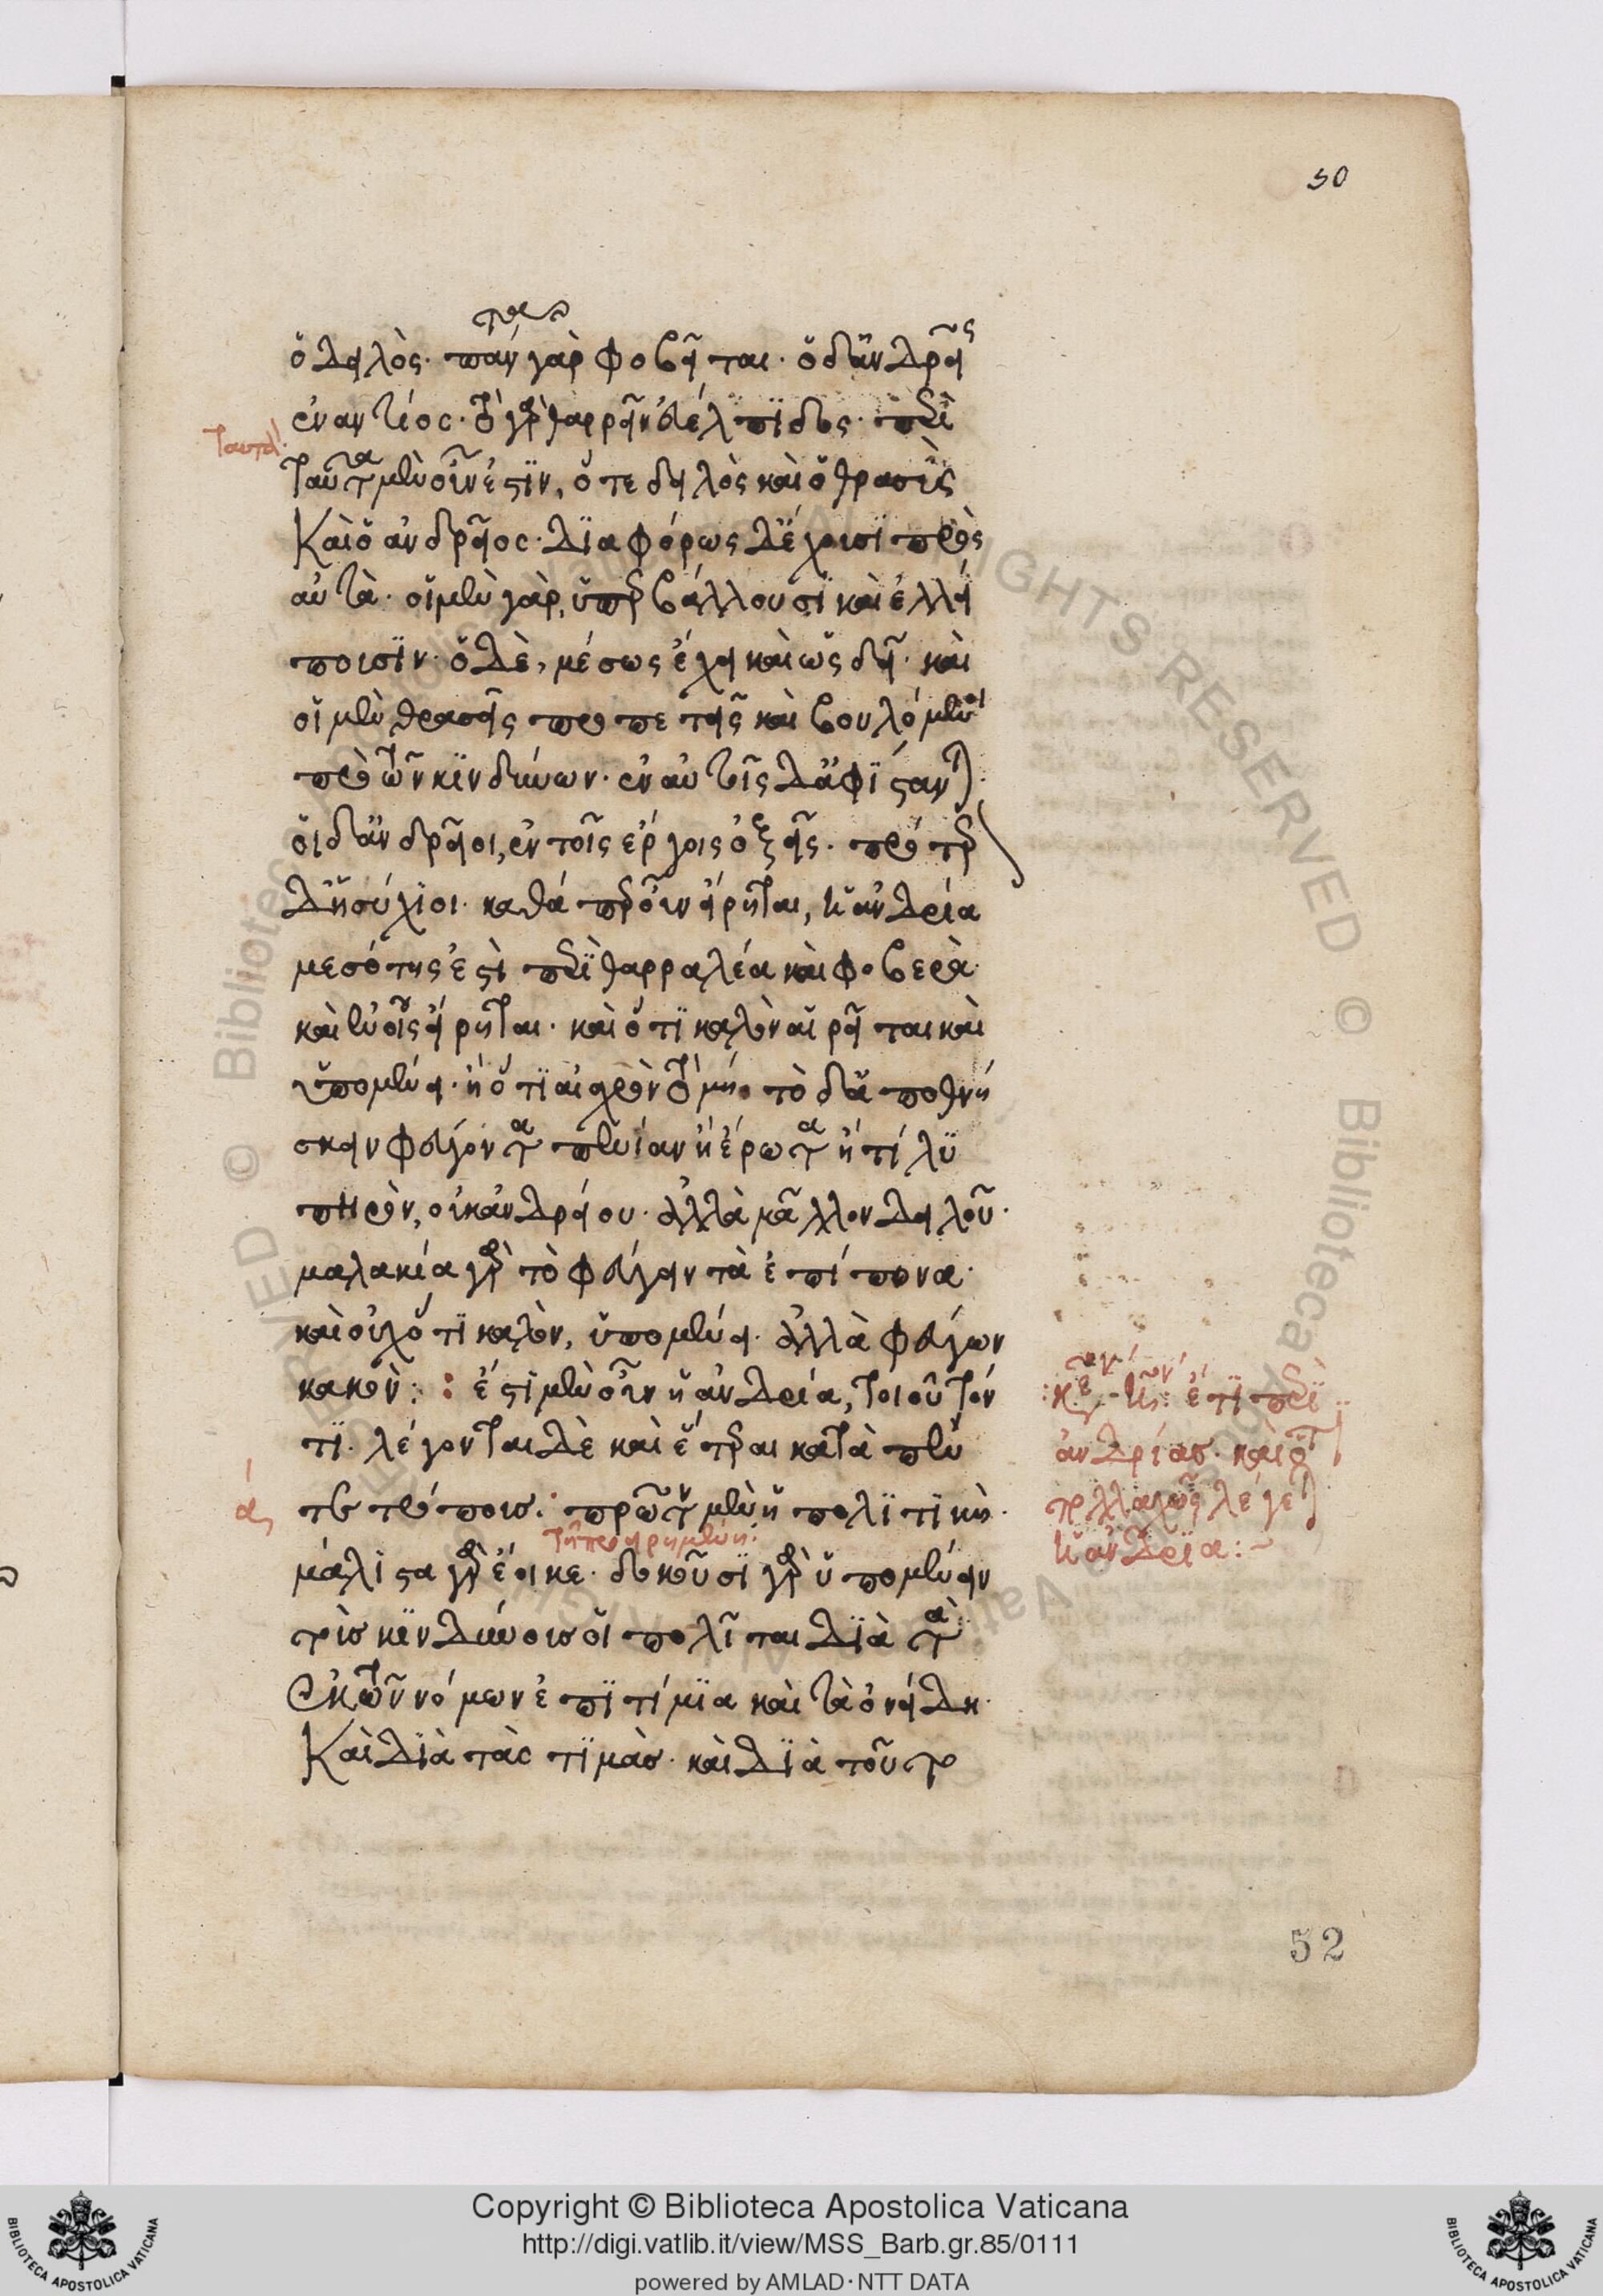 50
ὁ δειλὸς· πάντα γὰρ φοβεῖται· ὁ δ' ἀνδρεῖος
ἐναντίος· τὸ γὰρ θαρρεῖν εὐέλπιδος· περὶ
ταυτὰ·
ταῦτα μὲν οὖν ἐστὶν, ὅ τε δειλὸς καὶ ὁ θρασὺς
καὶ ὁ ἀνδρεῖος· διαφόρως δ' ἔχουσι πρὸς
αὐτὰ· οἱ μὲν γὰρ, ὑπερβάλλουσι καὶ ἐλλεί
πουσιν· ὁ δὲ, μέσως ἔχει καὶ ὡς δεῖ· καὶ
οἱ μὲν θρασεῖς προπετεῖς καὶ βουλόμενοι
πρὸ τῶν κινδύνων· ἐν αὐτοῖς δ' ἀφίστανται·
οἱ δ' ἀνδρεῖοι, ἐν τοῖς ἔργοις ὀξεῖς· πρότερον
δ' ἡσύχιοι· καθάπερ οὖν εἴρηται, ἡ ἀνδρεία
μεσότης ἐστὶ περὶ θαρραλέα καὶ φοβερὰ·
καὶ ἐν οἷς εἴρηται· καὶ ὅτι καλὸν αἱρεῖται καὶ
ὑπομένει· ἢ ὅτι αἰσχρὸν τὸ μή· τὸ δ' ἀποθνή
σκειν φεύγοντα πενίαν ἢ ἔρωτα ἤ τι λυ
πηρὸν, οὐκ ἀνδρείου· ἀλλὰ μᾶλλον δειλοῦ·
μαλακία γὰρ τὸ φεύγειν τὰ ἐπίπονα·
καὶ οὐχ ὅτι καλὸν, ὑπομένει· ἀλλὰ φεύγων
κακόν: : ἔστι μὲν οὖν ἡ ἀνδρεία, τοιοῦτόν
τι· λέγονται δὲ καὶ ἕτεραι κατὰ πέν
τε τρόπους: πρῶτον μὲν ἡ πολιτικὴ·
α
τῇ προειρημένῃ:
μάλιστα γὰρ ἔοικε· δοκοῦσι γὰρ ὑπομένειν
τοὺς κινδύνους οἱ πολῖται διὰ τὰ
ἐκ τῶν νόμων ἐπιτίμια καὶ τὰ ὀνείδη·
καὶ διὰ τὰς τιμὰς· καὶ διὰ τοῦτο
ἔτι περὶ
ἀνδρίας· καὶ ὅτι
πολλαχῶς λέγεται
ἡ ἀνδρία:~
52
Copyright © Biblioteca Apostolica Vaticana
http://digi.vatlib.it/view/MSS_Barb.gr.85/0111
powered by AMLAD·NTT DATA